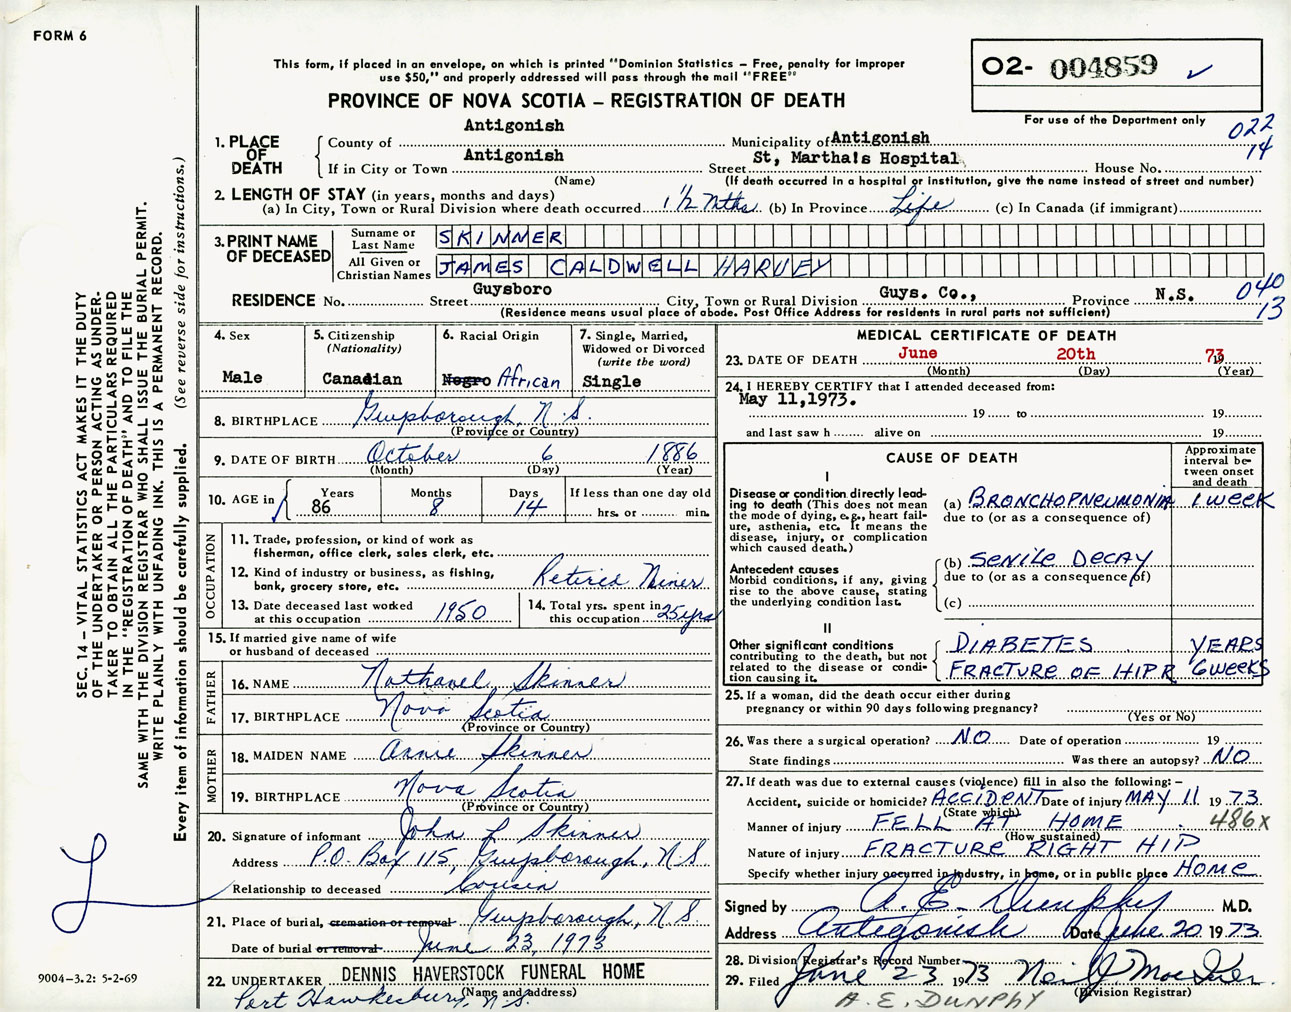 FORM 6
This form, if placed in an envelope, on which is printed "Dominion Statistics – Free, penalty for improper
use $50," and properly addressed will pass through the mail "FREE"
O2- 004859 ✓
For use of the Department only
022
14
PROVINCE OF NOVA SCOTIA – REGISTRATION OF DEATH
1. PLACE OF DEATH
County of Antigonish Municipality of Antigonish
If in City or Town Antigonish Street St, Martha's Hospital House No.
(Name) (If death occurred in a hospital or institution, give the name instead of street and number)
2. LENGTH OF STAY (in years, months and days)
(a) In City, Town or Rural Division where death occurred 1 1/2 Mths (b) In Province Life (c) In Canada (if immigrant)
3. PRINT NAME OF DECEASED
Surname or Last Name SKINNER
All Given or Christian Names JAMES CALDWELL HARVEY
RESIDENCE No. Street Guysboro City, Town or Rural Division Guys. Co., Province N.S.
040
13
(Residence means usual place of abode. Post Office Address for residents in rural parts not sufficient)
4. Sex
Male
5. Citizenship
(Nationality)
Canadian
6. Racial Origin
Negro African
7. Single, Married,
Widowed or Divorced
(write the word)
Single
8. BIRTHPLACE Guysborough, N.S.
(Province or Country)
9. DATE OF BIRTH October 6 1886
(Month) (Day) (Year)
10. AGE in Years Months Days If less than one day old
86 8 14 hrs. or min.
OCCUPATION
11. Trade, profession, or kind of work as
fisherman, office clerk, sales clerk, etc.
12. Kind of industry or business, as fishing,
bank, grocery store, etc. Retired Miner
13. Date deceased last worked
at this occupation 1950
14. Total yrs. spent in
this occupation 25 yrs
15. If married give name of wife
or husband of deceased
FATHER
16. NAME Nathanel Skinner
17. BIRTHPLACE Nova Scotia
(Province or Country)
MOTHER
18. MAIDEN NAME Annie Skinner
19. BIRTHPLACE Nova Scotia
(Province or Country)
20. Signature of informant John L Skinner
Address P.O. Box 115, Guysborough, N.S
Relationship to deceased Cousin
21. Place of burial, cremation or removal Guysborough, N.S.
Date of burial or removal June 23, 1973
22. UNDERTAKER DENNIS HAVERSTOCK FUNERAL HOME
(Name and address)
Port Hawkesbury, N.S.
MEDICAL CERTIFICATE OF DEATH
23. DATE OF DEATH June 20th 1973
(Month) (Day) (Year)
24. I HEREBY CERTIFY that I attended deceased from:
May 11,1973.
19 to 19
and last saw h alive on 19
CAUSE OF DEATH
Approximate
interval be-
tween onset
and death
I
Disease or condition directly lead-
ing to death (This does not mean
the mode of dying, e.g., heart fail-
ure, asthenia, etc. It means the
disease, injury, or complication
which caused death.)
(a) BRONCHOPNEUMONIA 1 WEEK
due to (or as a consequence of)
Antecedent causes
Morbid conditions, if any, giving
rise to the above cause, stating
the underlying condition last.
(b) SENILE DECAY
due to (or as a consequence of)
(c)
II
Other significant conditions
contributing to the death, but not
related to the disease or condi-
tion causing it.
DIABETES YEARS
FRACTURE OF HIP R 6 WEEKS
25. If a woman, did the death occur either during
pregnancy or within 90 days following pregnancy?
(Yes or No)
26. Was there a surgical operation? NO Date of operation 19
State findings Was there an autopsy? NO
27. If death was due to external causes (violence) fill in also the following: –
Accident, suicide or homicide? ACCIDENT Date of injury MAY 11 1973
(State which)
Manner of injury FELL AT HOME 486x
(How sustained)
Nature of injury FRACTURE RIGHT HIP
Specify whether injury occurred in industry, in home, or in public place HOME
Signed by A. E. Dunphy M.D.
Address Antigonish Date June 20 1973
28. Division Registrar's Record Number
29. Filed June 23 1973 Neil J.
(Division Registrar)
A. E. DUNPHY
SEC. 14 – VITAL STATISTICS ACT MAKES IT THE DUTY
OF THE UNDERTAKER OR PERSON ACTING AS UNDER-
TAKER TO OBTAIN ALL THE PARTICULARS REQUIRED
IN THE "REGISTRATION OF DEATH" AND TO FILE THE
SAME WITH THE DIVISION REGISTRAR WHO SHALL ISSUE THE BURIAL PERMIT.
WRITE PLAINLY WITH UNFADING INK. THIS IS A PERMANENT RECORD.
Every item of information should be carefully supplied. (See reverse side for instructions.)
9004–3.2: 5-2-69